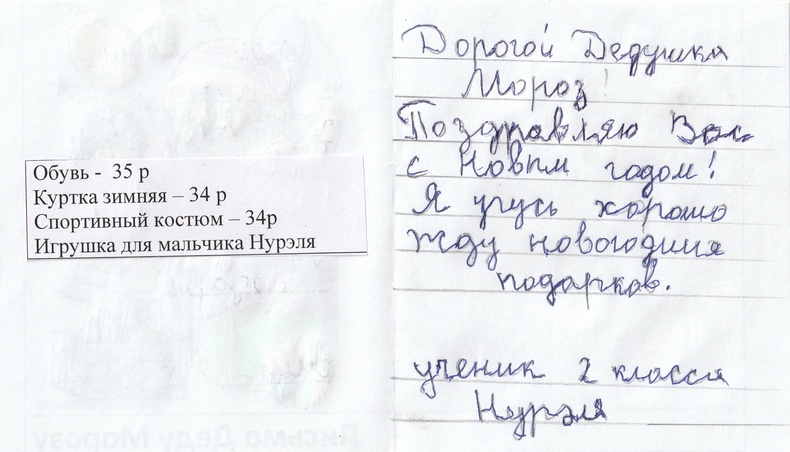 Обувь - 35 р
Куртка зимняя – 34 р
Спортивный костюм – 34р
Игрушка для мальчика Нурэля
Дорогой Дедушка
Мороз!
Поздравляю Вас
с Новым годом!
Я учусь хорошо
Жду новогодния
подарков.
ученик 2 класса
Нурэля
Письмо Деду Морозу